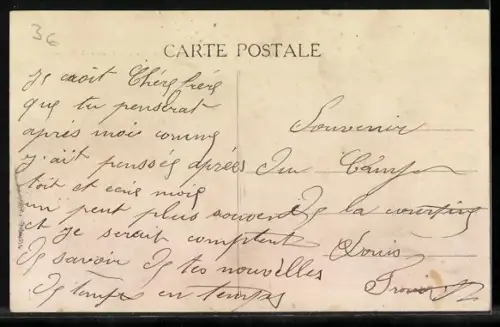 36
CARTE POSTALE
Je croit Chére frére
que tu penserat
aprés moi comme
j'ait penssés aprées
toit et ecris mois
un peut plus souvent
et je serait comptent
de savoir de tes nouvélles
de temps en temps
Souvenir
Du Camp
De la courtine
Louis